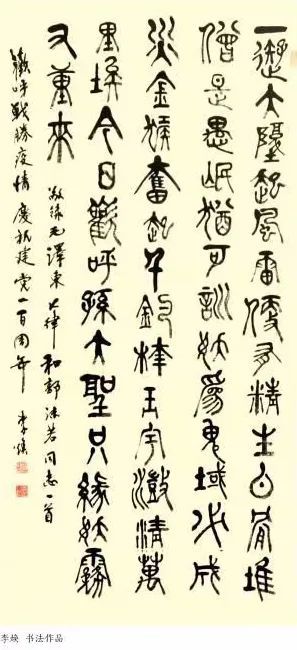 一從大墬起風雷便有精生白骨堆
僧是愚氓猶可訓妖爲鬼域必成
災金猴奮起千鈞棒玉宇澂清萬
里埃今日歡呼孫大聖只緣妖霧
又重來
敬錄毛澤東七律和郭沫若同志一首
歡呼戰勝疫情慶祝建党一百周年 李煥
李焕 书法作品